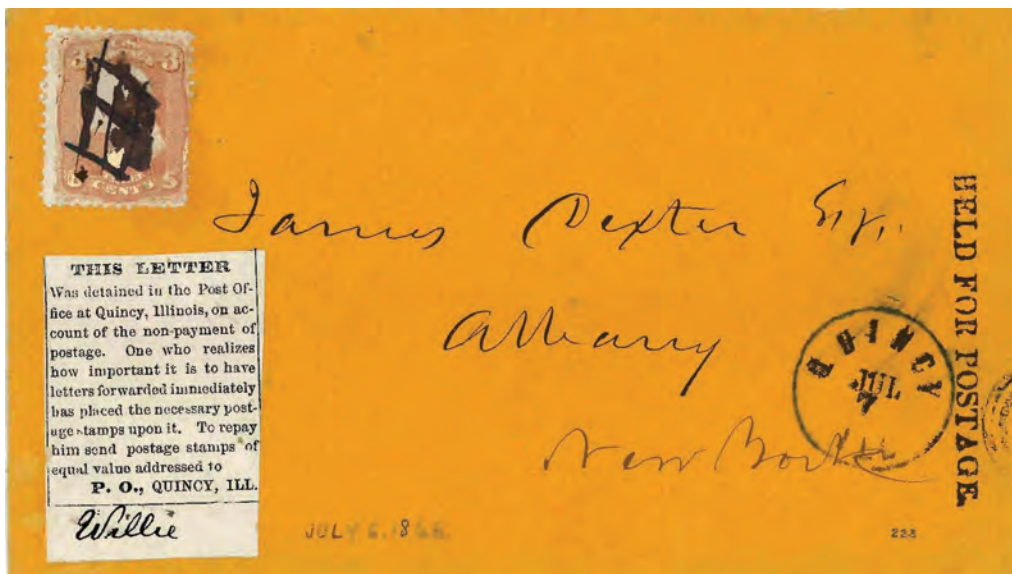 3 3
CENTS
James Dexter Esq.
Albany
New York
THIS LETTER
Was detained in the Post Of-
fice at Quincy, Illinois, on ac-
count of the non-payment of
postage. One who realizes
how important it is to have
letters forwarded immediately
has placed the necessary post-
age stamps upon it. To repay
him send postage stamps of
equal value addressed to
P. O., QUINCY, ILL.
Willie
QUINCY
JUL
7
HELD FOR POSTAGE.
JULY 6, 186
223